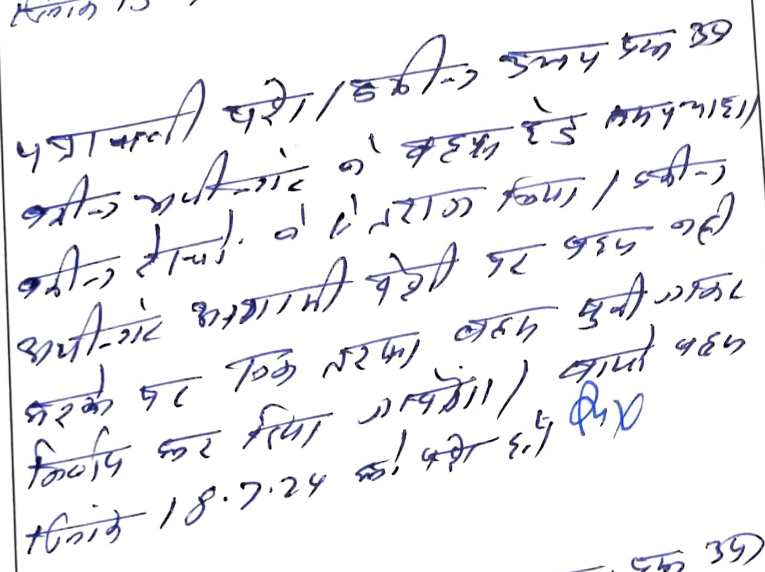 दिनांक 13
पत्रावली पेश। वकील उभय पक्ष उप
वकील अपीलांट ने बहस हेतु समय चाहा।
वकील रेस्पो. ने ऐतराज किया। वकील
अपीलांट आगामी पेशी पर बहस नहीं
करने पर एक तरफा बहस सुनी जाकर
निर्णय कर दिया जायेगा। वास्ते बहस
दिनांक 18.7.24 को पेश हो।
पक्ष उप